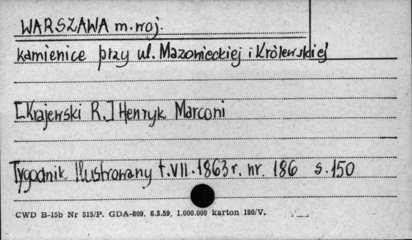 WARSZAWA m. woj.
kamienice przy ul. Mazowieckiej i Królewskiej
[Krajewski R.] Henryk Marconi
Tygodnik Illustrowany t.VII.1863 r. nr. 186 s. 150
CWD B-15b Nr 515/P. GDA-809. 6.3.59. 1.000.000 karton 180/V.